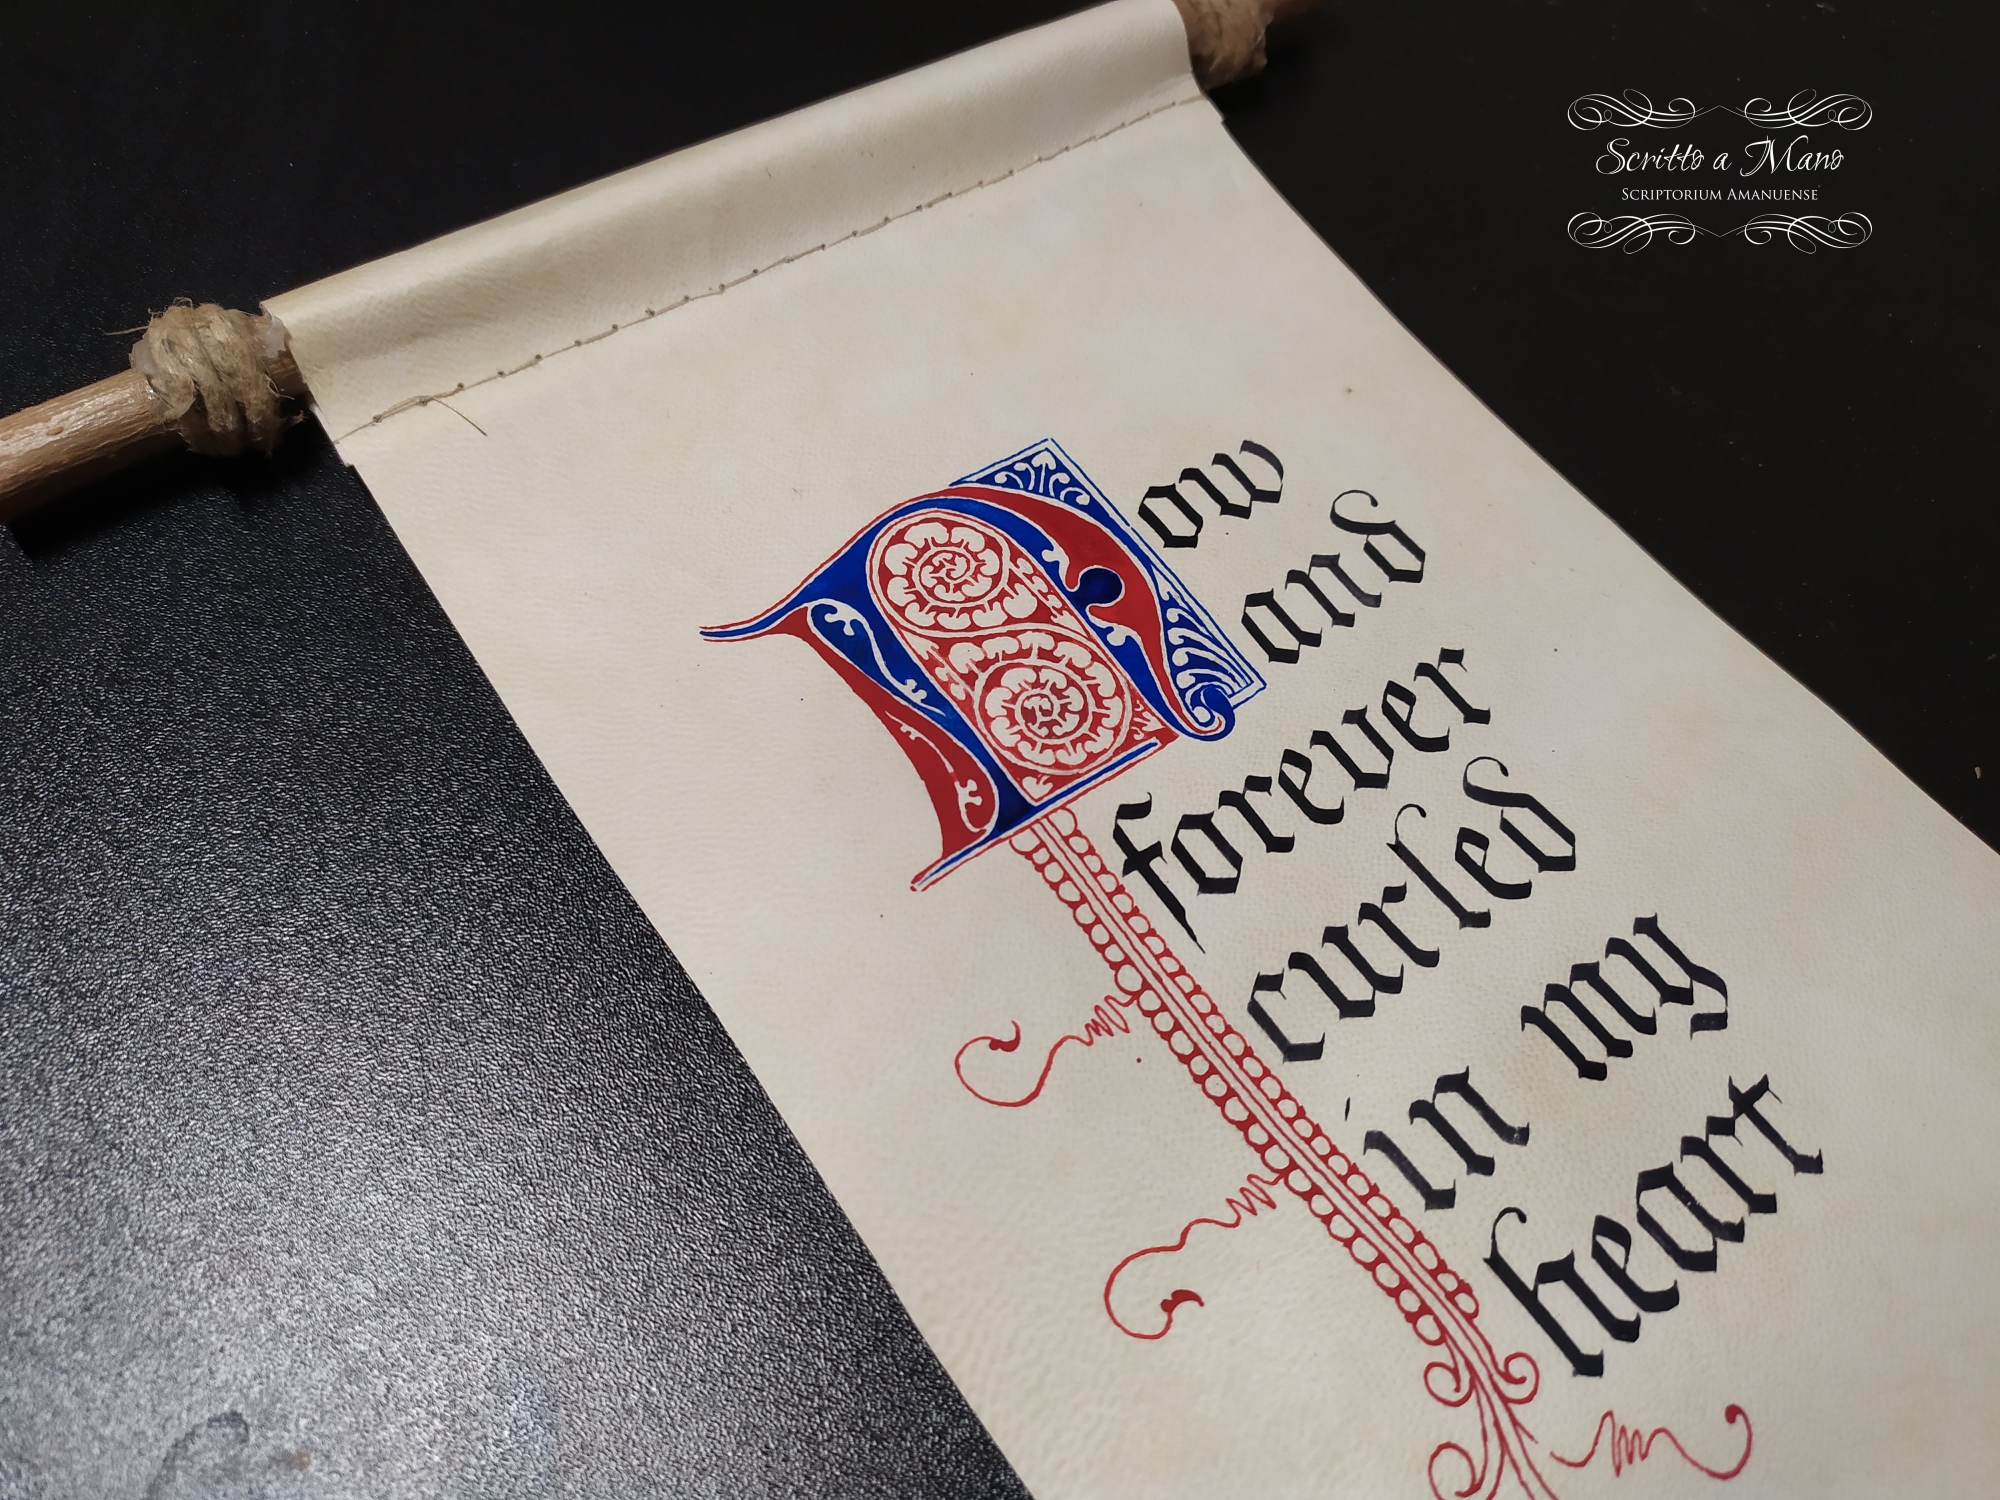 Now
and
forever
curled
in my
heart
Scritto a Mano
Scriptorium Amanuense